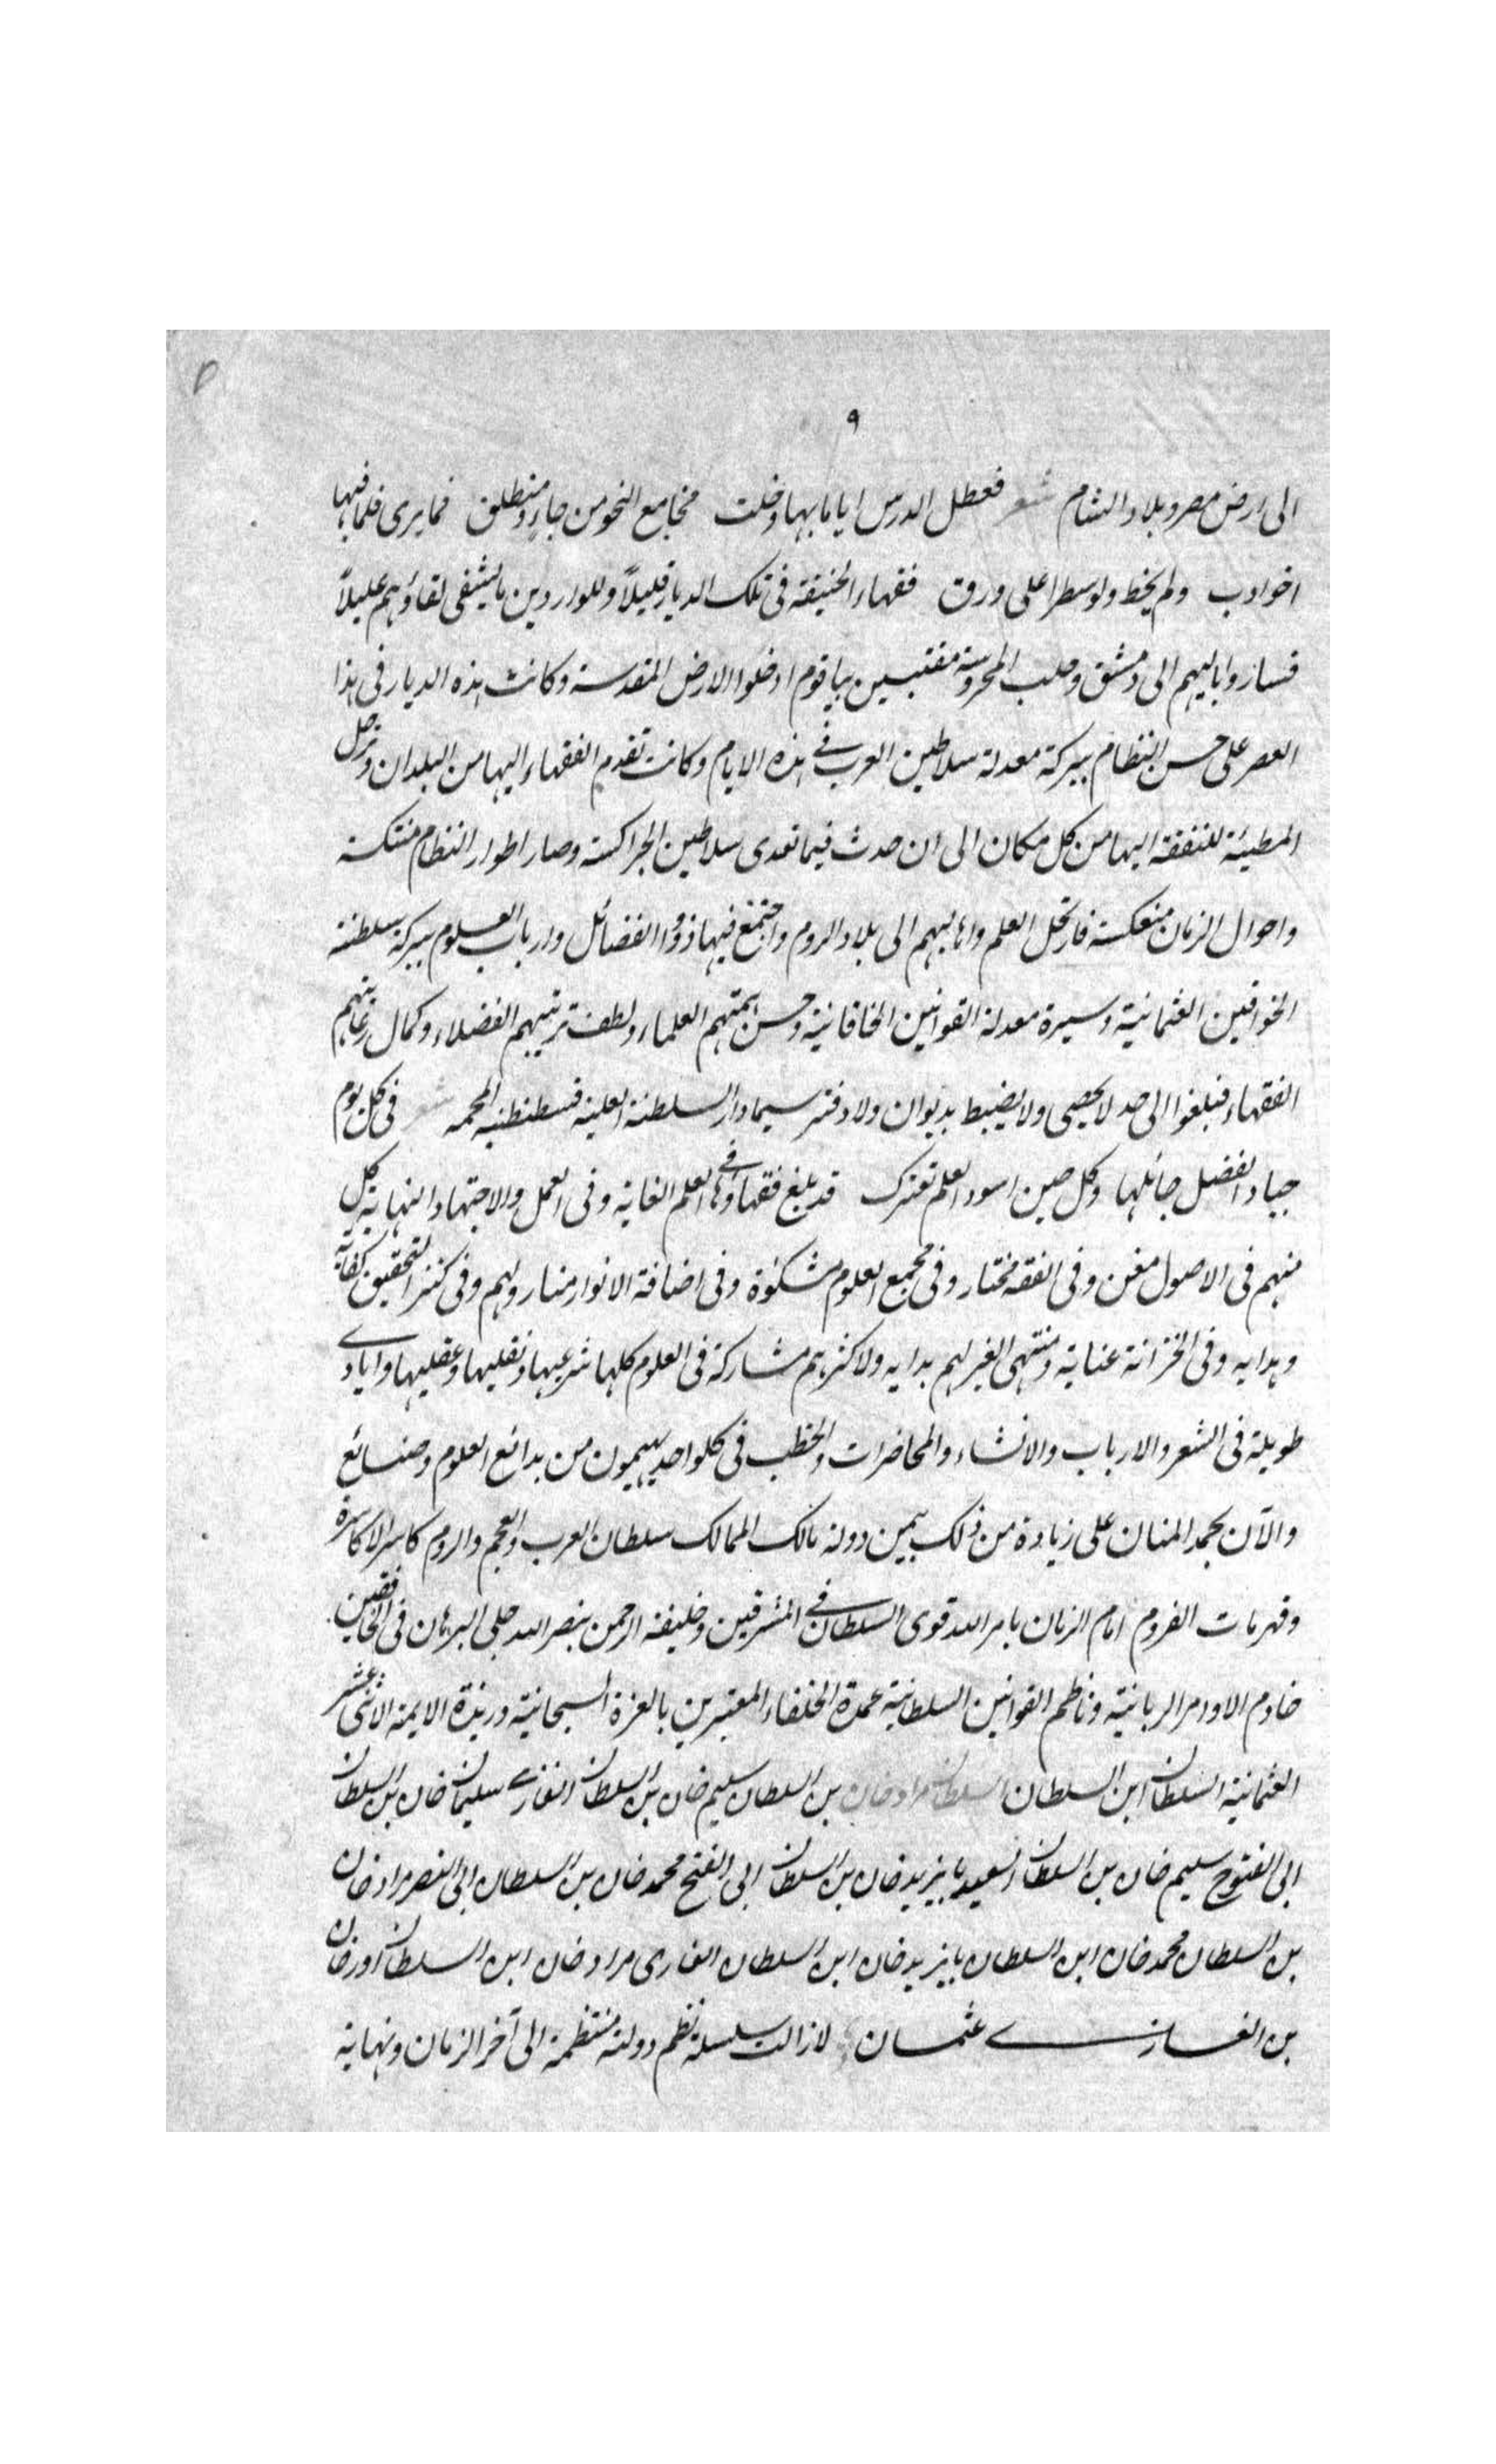 ٩
الى ارض مصر وبلاد الشام شعر فعطل الدرس اياما بها وخلت مجامع النحو من جاء ومنطلق فما يرى قلما فيها
اخو ادب ولم يخط ولو سطرا على ورق فقهاء الحنيفة فى تلك الديار قليلاً وللواردين ما يشفى لقاؤهم عليلاً
فساروا باليهم الى دمشق وحلب المحروسة مقتبسين بيا قوم ادخلوا الارض المقدسة وكانت هذه الديار فى هذا
العصر على حسن النظام ببركة معدلة سلاطين العرب فى هذه الايام وكانت تقدم الفقهاء اليها من البلدان وترحل
المطيئة للتفقه اليها من كل مكان الى ان حدث فيما تعدى سلاطين الجراكسة وصار اطوار النظام منتكسة
واحوال الزمان منعكسة فارتحل العلم واهاليهم الى بلاد الروم واجتمع فيها ذووا الفضائل وارباب العلوم ببركة سلطنة
الخواقين العثمانية وسيرة معدلة القوانين الخاقانية وحسن همتهم العلماء ولطف تربيتهم الفضلاء وكمال رعايتهم
الفقهاء فبلغوا الى حد لا يحصى ولا يضبط بديوان ولا دفتر سيما دار السلطنة العلية قسطنطنيه المحميه شعر فى كل يوم
جياد الفضل جائلها وكل حين اسود العلم تعترك قد بلغ فقهاؤها فى العلم الغاية وفى العمل والاجتهاد النهاية كل
منهم فى الاصول مغن وفى الفقه مختار وفى مجمع العلوم مشكوة وفى اضافة الانوار منار ولهم وفى كنز التحقيق كفاية
وهدايه وفى الخزانة عناية ومنتهى الغير لهم بدايه ولاكثرهم مشاركة فى العلوم كلها شرعيها ونقليها وعقليها وايادى
طويلة فى الشعر والارباب والانشاء والمحاضرات والخطب فى كلواحد يهيمون من بدائع العلوم وصنائع
والآن بحمد المنان على زيادة من ذلك بيمن دولة مالك الممالك سلطان العرب والعجم والروم كاسر الاكاسرة
وقهرمات القروم امام الزمان بامر الله قوى السلطان فى المشرقين وخليفة الرحمن بنصر الله جلى البرهان فى الخافقين
خادم الاوامر الربانية وناظم القوانين السلطانية عمدة الخلفاء المعتبرين بالعزة السبحانية وزبدة الايمة الاثنى عشر
العثمانية السلطان ابن السلطان السلطان مراد خان بن السلطان سليم خان بن السلطان الغازى سليمان خان بن السلطان
ابى الفتوح سليم خان بن السلطان السعيد بايزيد خان بن السلطان ابى الفتح محمد خان بن السلطان ابى النصر مراد خان
بن السلطان محمد خان ابن السلطان بايزيد خان ابن السلطان الغازى مراد خان ابن السلطان اورخان
بن الغازى عثمان لازالت سلسلة نظم دولته منتظمة الى آخر الزمان ونهاية